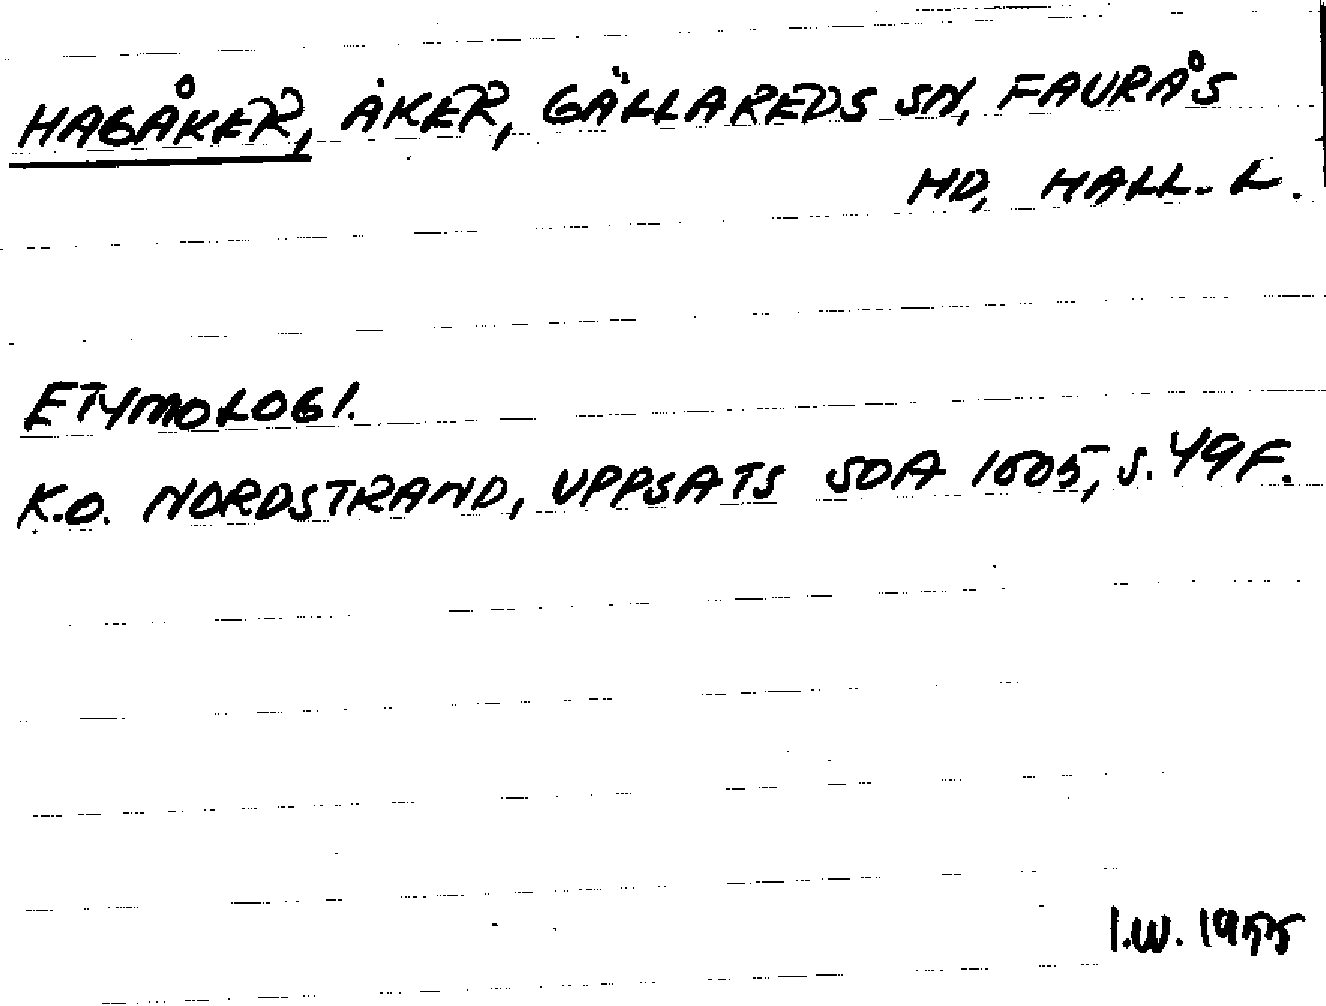 HAGÅKER, ÅKER, GÄLLAREDS SN, FAURÅS
HD, HALL. L.
ETYMOLOGI.
K.O. NORDSTRAND, UPPSATS SOA 1505, S. 49 F.
I.W. 1955